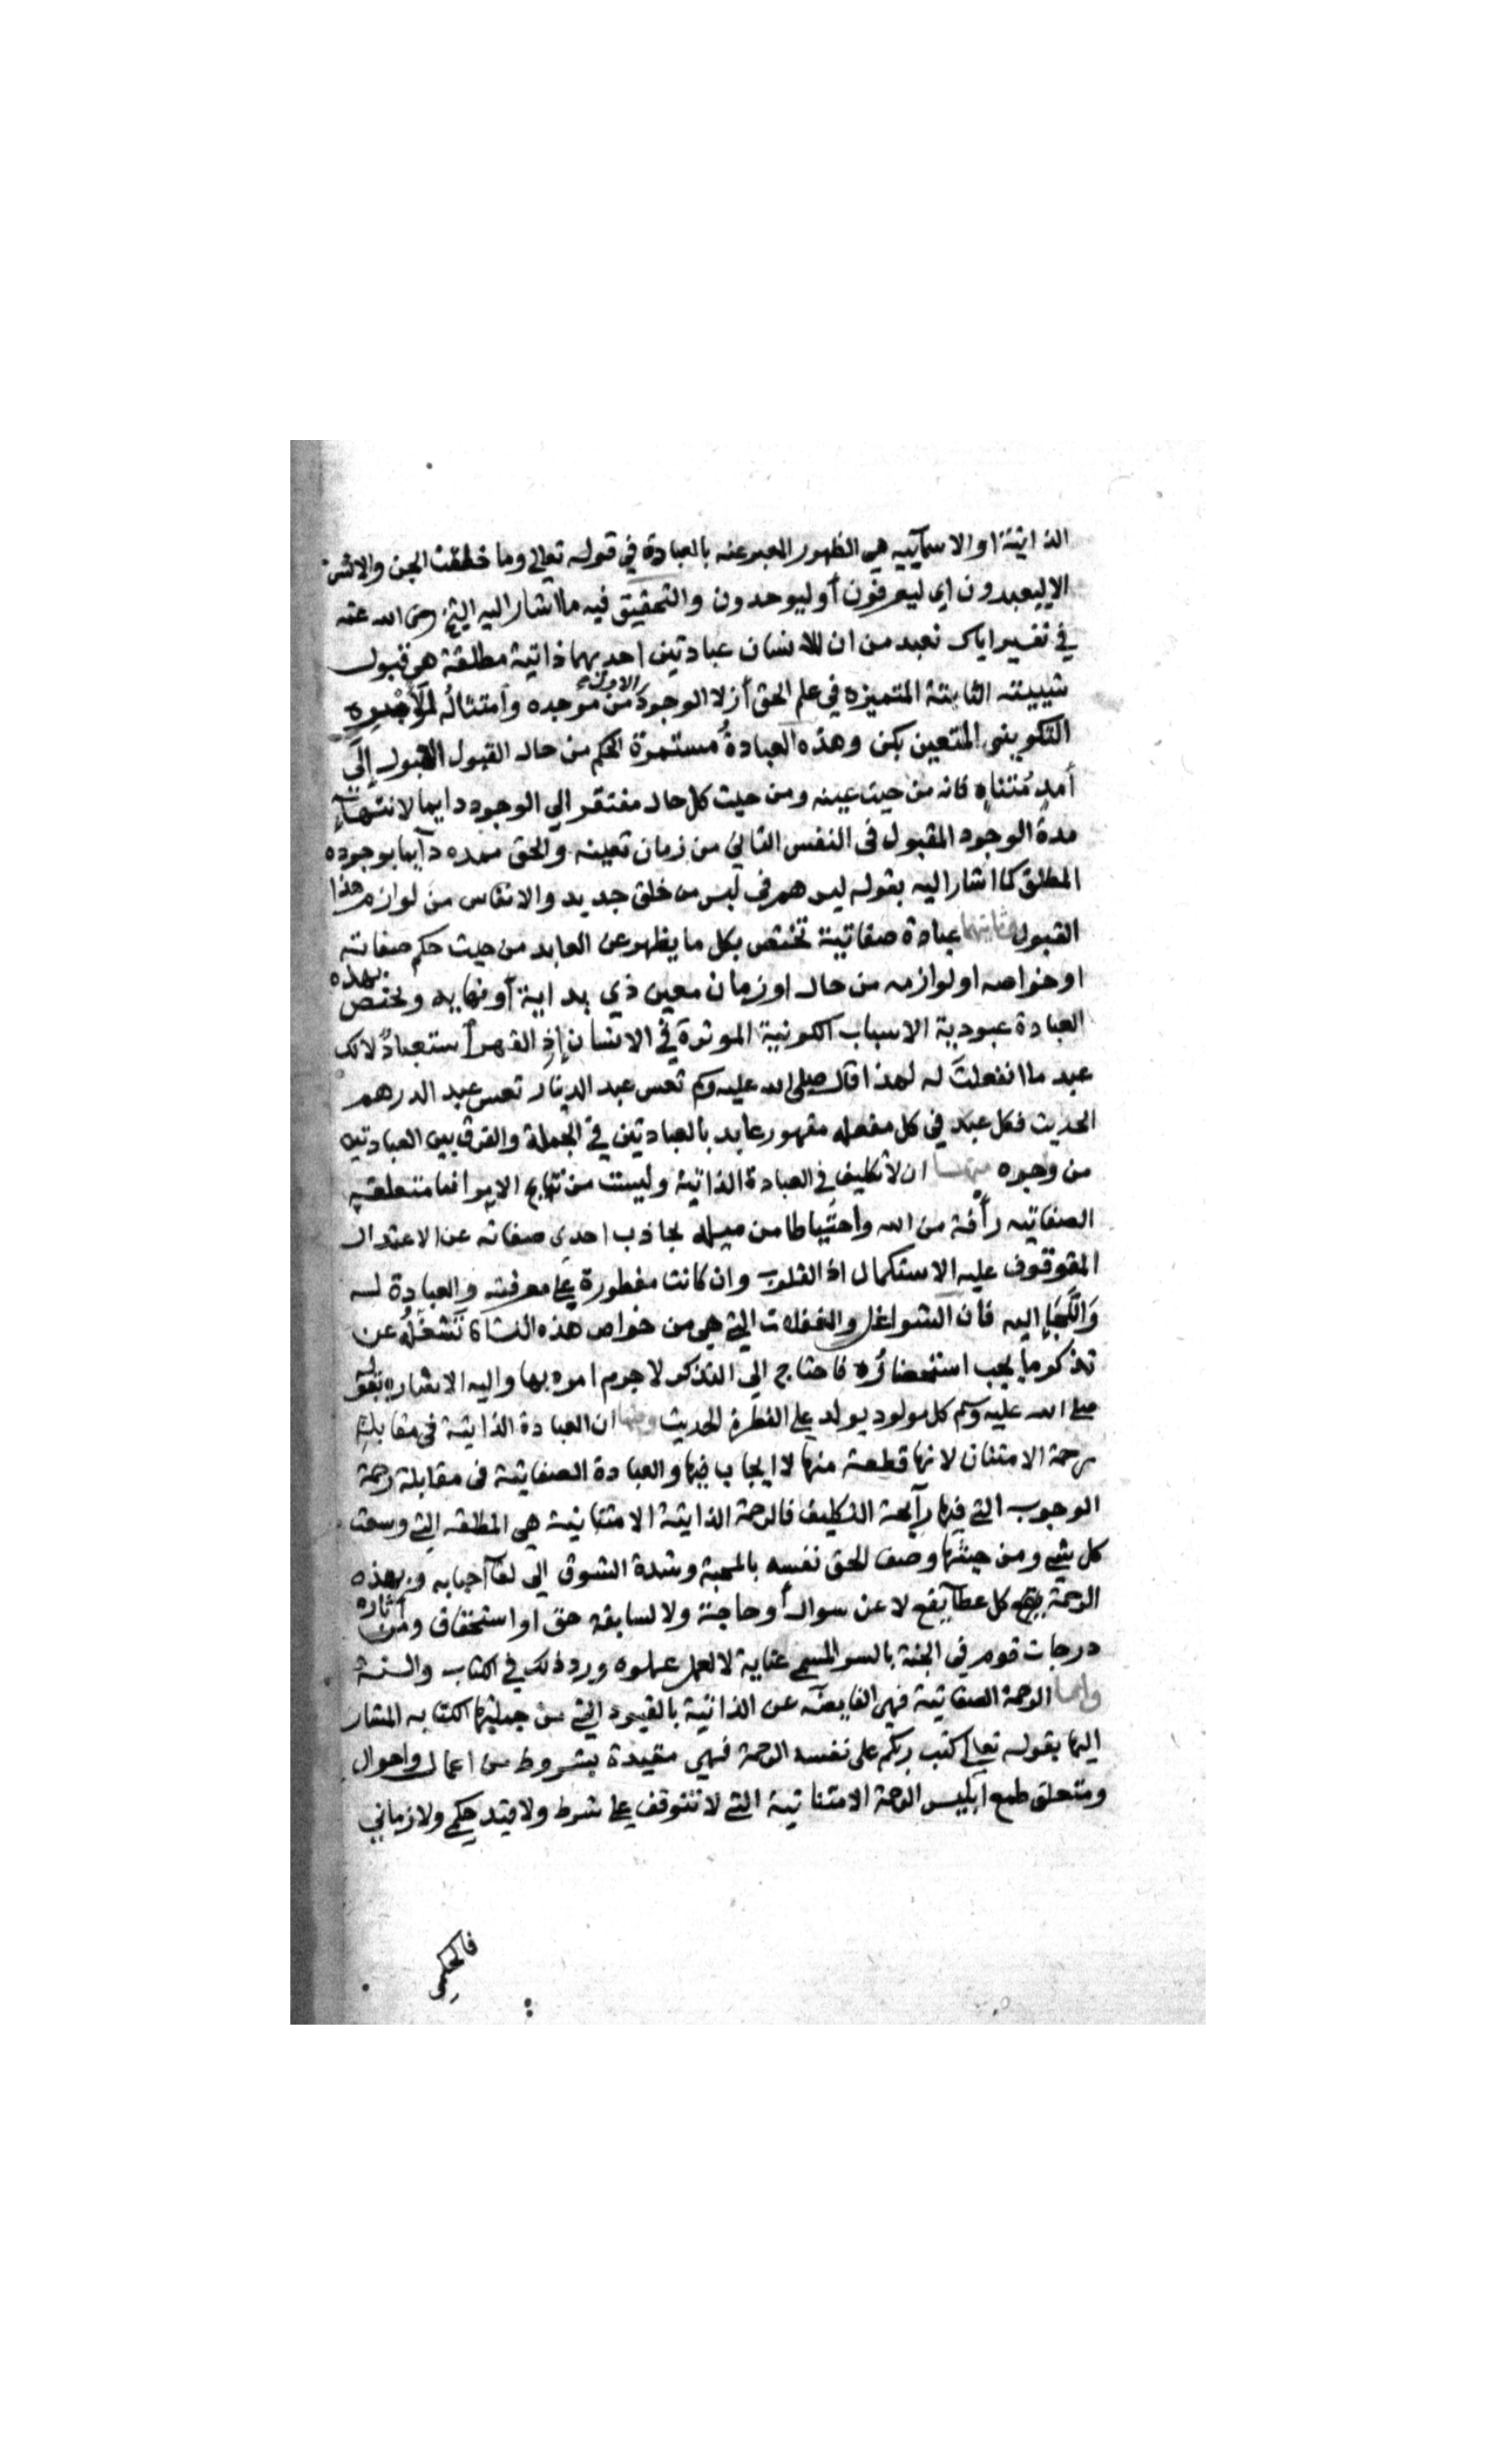 الذاتية او الاسمآييه هي الظهور المعبر عنه بالعبادة في قوله تعالى وما خلقت الجن والانس
الا ليعبدون اي ليعرفون أو ليوحدون والتحقيق فيه ما اشار اليه الشيخ رضى الله عنه
في تفسير اياك نعبد من ان للانسان عبادتين احديهما ذاتية مطلقة هي قبول
شييته الثابتة المتميزه في علم الحق أزلا الوجود الاول من موجده وامتثاله للأمر
التكويني المتعين بكن وهذه العبادةُ مستمرة الحكم من حال القبول الاول إلى
أمدٍ مُتناهٍ فانه من حيث عينه ومن حيث كل حال مفتقر الي الوجود دايما لانتهآءِ
مدة الوجود المقبول في النفس الثاني من زمان تعينه والحق ممده دآيما بوجوده
المطلق كما اشار اليه بقوله بل هم في لبس من خلق جديد والانفاس من لوازم هذا
القبول وثانيتهما عبادة صفاتية تختص بكل ما يظهر عن العابد من حيث حكم صفاته
او خواصه او لوازمه من حال او زمان معين ذي بداية أو نهايه وتختص بهذه
العبادة عبودية الاسباب الكونية الموثرة في الانسان إذ القهر أستعباد لانك
عبد ما انفعلتَ له لهذا قال صلى الله عليه وسلم تعس عبد الدينار تعس عبد الدرهم
الحديث فكل عبد في كل مفعله مقهور عابد بالعبادتين في الجملة والفرق بين العبادتين
من وجوه منها ان لا تكليف في العبادة الذاتية وليست من نتايج الامر انما متعلقه
الصفاتيه رأفة من الله واحتياطا من ميله بجاذب احدى صفاته عن الاعتدال
الموقوف عليه الاستكمال اذ القلوب وان كانت مفطورة على معرفته والعبادة له
وَاللَجَإِ اليه فان الشواغل والغفلات التي هي من خواص هذه النشاة تَشغَلُه عن
تذكر ما يجب استحضارُه فاحتاج الى التذكر لا جرم امره بها واليه الاشاره بقوله
صلى الله عليه وسلم كل مولود يولد على الفطرة الحديث ومنها ان العبادة الذاتية في مقابلة
رحمة الامتنان لانها قطعت منها لا ايجاب فيها والعبادة الصفاتية في مقابلة رحمة
الوجوب التي فيها رآيحة التكليف فالرحمة الذاتية الامتنانية هي المطلقه التي وسعت
كل شيء ومن حيثها وصف الحق نفسه بالمحبة وشدة الشوق الى لقآ احبابه وبهذه
الرحمة كل عطآ يقع لا عن سوال أو حاجة ولا لسابقه حق او استحقاق ومن آثاره
درجات قوم في الجنة بالسر المسمى عناية لا لعمل عملوه ورد ذلك في الكتاب والسنة
واما الرحمة الصفاتية فهي الفايضه عن الذاتية بالقيود التي من جملتها الكتابه المشار
اليها بقوله تعالى كتب ربكم على نفسه الرحمة فهي مقيدة بشروط من اعمال واحوال
ومتعلق طمع ابليس الرحمة الامتنانية التي لا تتوقف على شرط ولا قيد حكمي ولا زماني
فالحكمى